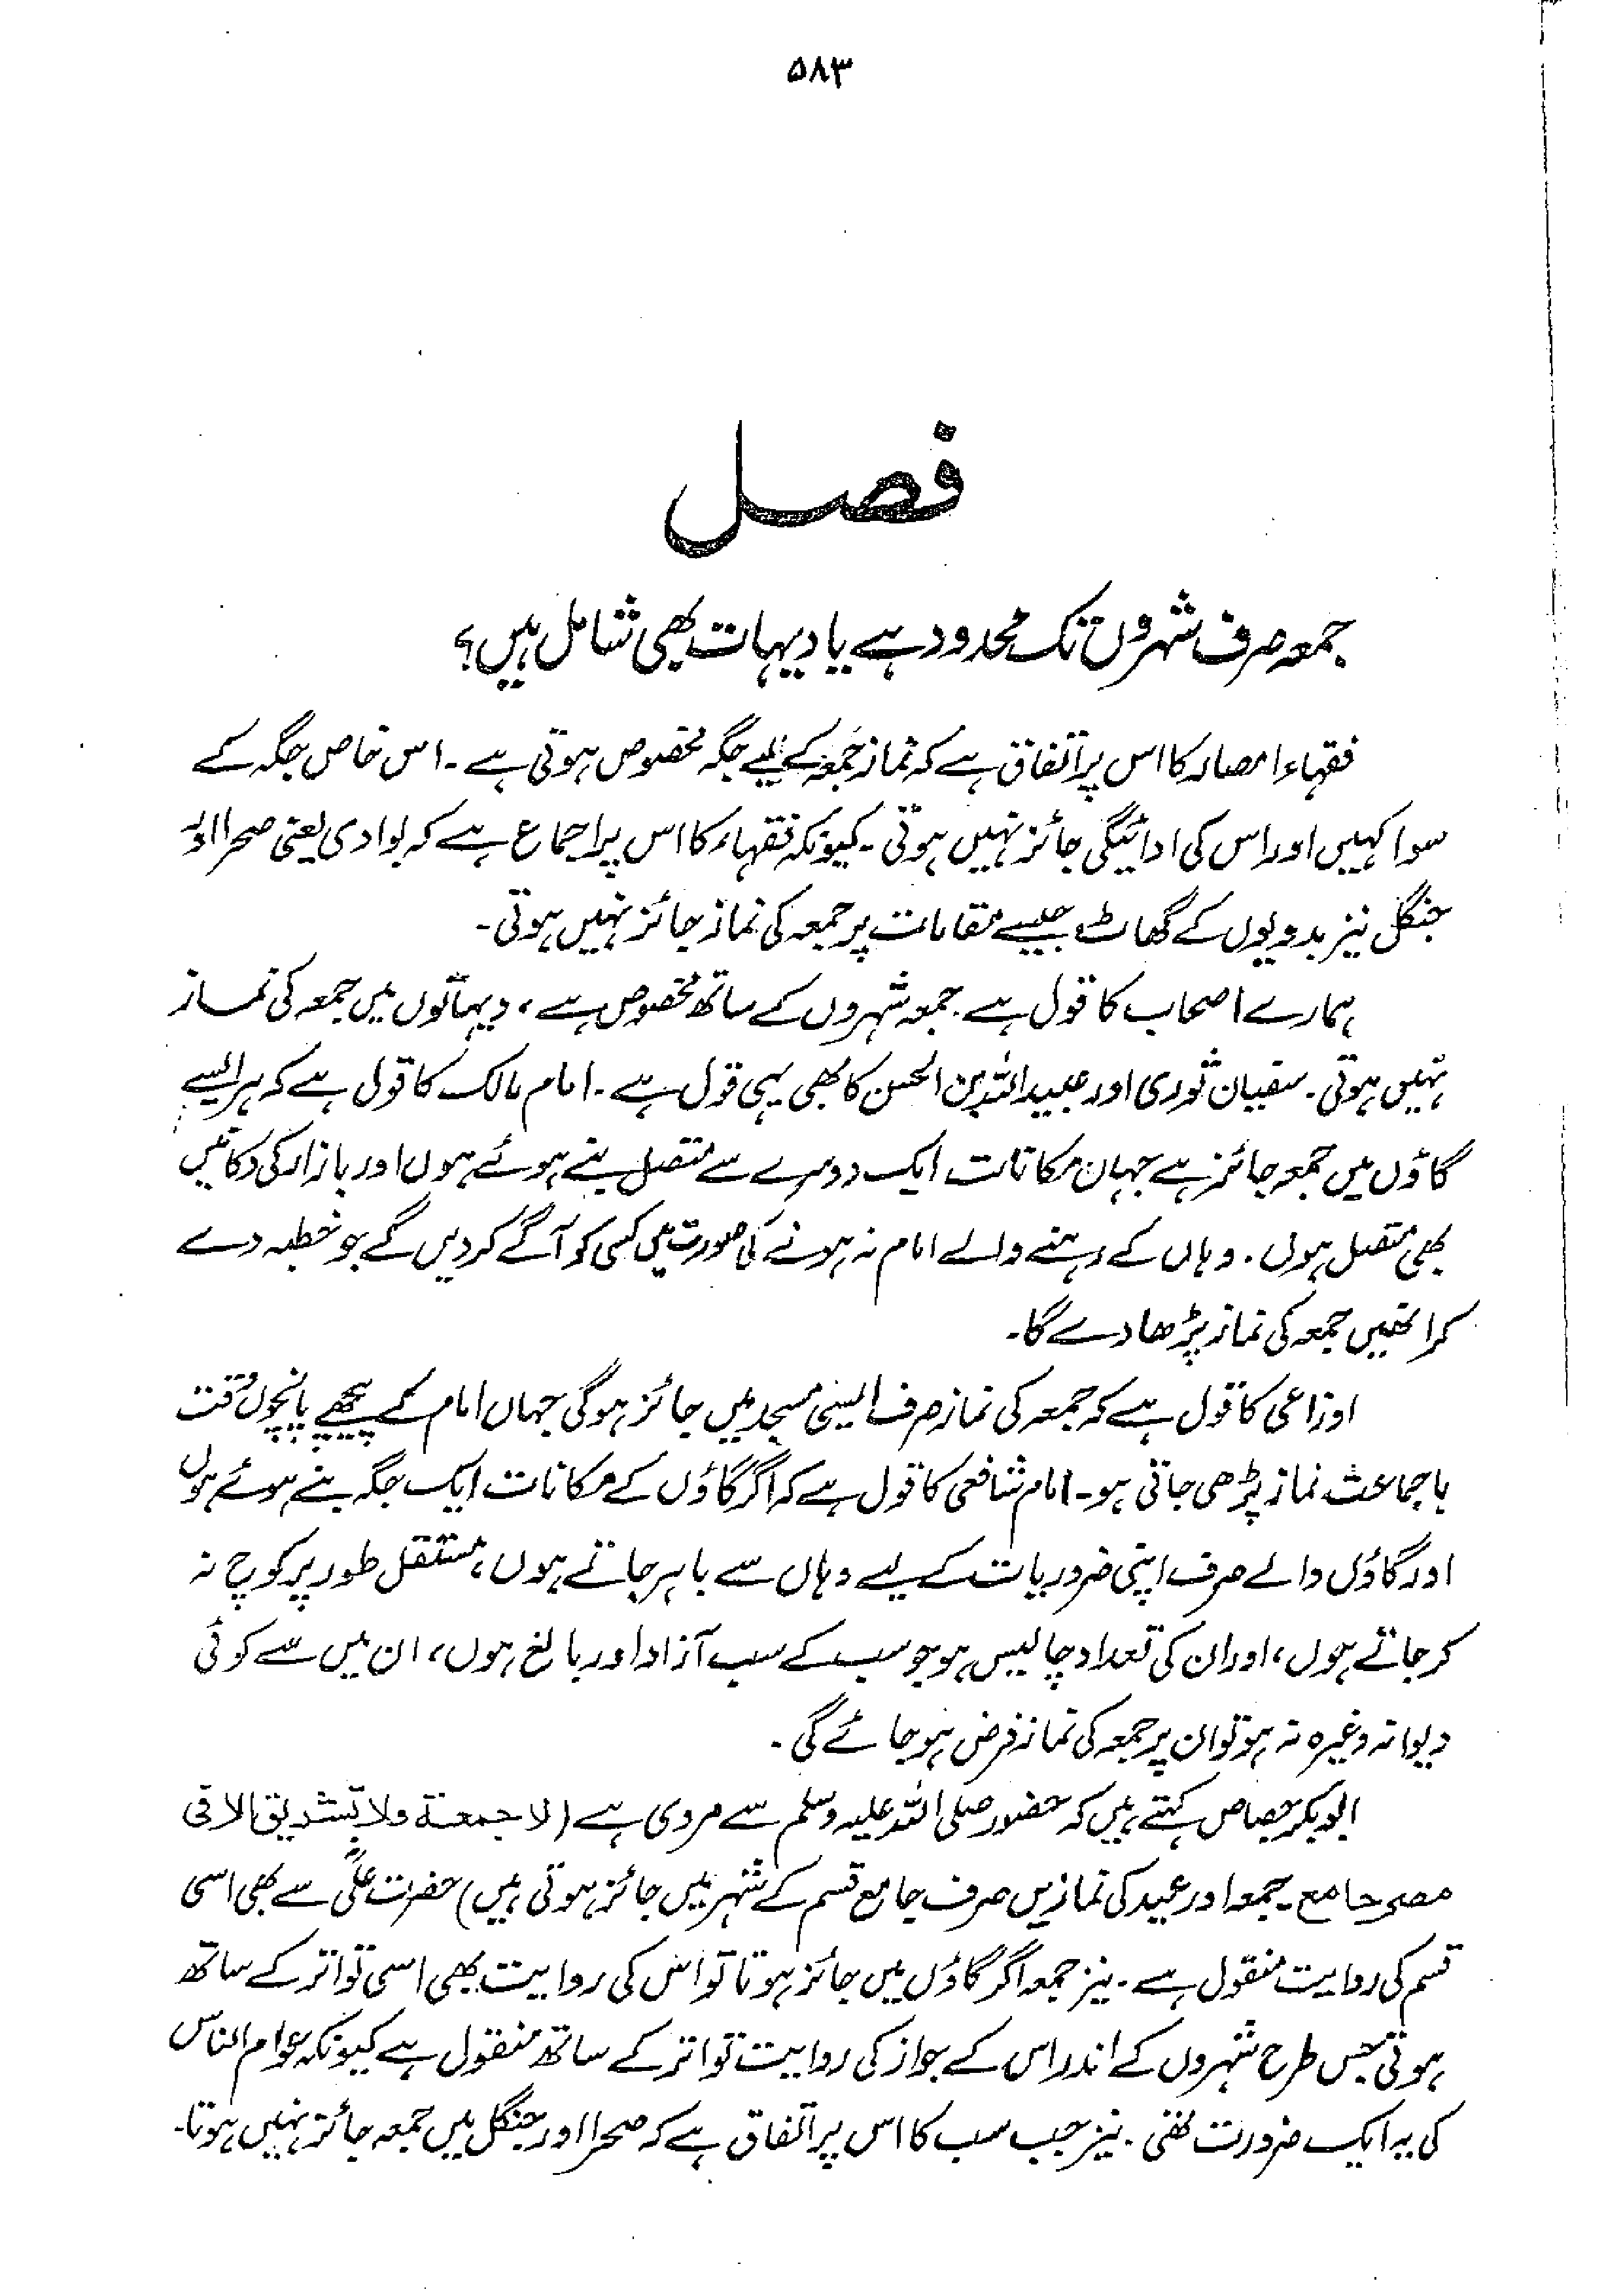 ۵۸۳
فصل
جمعہ صرف شہروں تک محدود ہے یا دیہات بھی شامل ہیں؟
فقہاء امصار کا اس پر اتفاق ہے کہ نماز جمعہ کے لیے جگہ مخصوص ہوتی ہے۔ اس خاص جگہ کے
سوا کہیں اور اس کی ادائیگی جائز نہیں ہوتی۔ کیونکہ فقہاء کا اس پر اجماع ہے کہ بوادی یعنی صحرا اور
جنگل نیز بدویوں کے گھاٹ جیسے مقامات پر جمعہ کی نماز جائز نہیں ہوتی۔
ہمارے اصحاب کا قول ہے جمعہ شہروں کے ساتھ مخصوص ہے، دیہاتوں میں جمعہ کی نماز
نہیں ہوتی۔ سفیان ثوری اور عبید اللہ بن الحسن کا بھی یہی قول ہے۔ امام مالک کا قول ہے کہ ہر ایسے
گاؤں میں جمعہ جائز ہے جہان مکانات ایک دوسرے سے متصل بنے ہوئے ہوں اور بازار کی دکانیں
بھی متصل ہوں۔ وہاں کے رہنے والے امام نہ ہونے کی صورت میں کسی کو آگے کر دیں گے جو خطبہ دے
کر انھیں جمعہ کی نماز پڑھا دے گا۔
اوزاعی کا قول ہے کہ جمعہ کی نماز صرف ایسی مسجد میں جائز ہوگی جہاں امام کے پیچھے پانچوں وقت
با جماعت نماز پڑھی جاتی ہو۔ امام شافعی کا قول ہے کہ اگر گاؤں کے مکانات ایک جگہ بنے ہوئے ہوں
اور گاؤں والے صرف اپنی ضروریات کے لیے وہاں سے باہر جاتے ہوں، مستقل طور پر کوچ نہ
کر جاتے ہوں، اور ان کی تعداد چالیس ہو جو سب کے سب آزاد اور بالغ ہوں، ان میں سے کوئی
دیوانہ وغیرہ نہ ہو تو ان پر جمعہ کی نماز فرض ہو جائے گی۔
ابوبکر جصاص کہتے ہیں کہ حضور صلی اللہ علیہ وسلم سے مروی ہے (لا جمعة ولا تشريق الا فى
مصر جامع۔ جمعہ اور عید کی نمازیں صرف جامع قسم کے شہر میں جائز ہوتی ہیں) حضرت علیؓ سے بھی اسی
قسم کی روایت منقول ہے۔ نیز جمعہ اگر گاؤں میں جائز ہوتا تو اس کی روایت بھی اسی تواتر کے ساتھ
ہوتی جس طرح شہروں کے اندر اس کے جواز کی روایت تواتر کے ساتھ منقول ہے کیونکہ عوام الناس
کی یہ ایک ضرورت تھی۔ نیز جب سب کا اس پر اتفاق ہے کہ صحرا اور جنگل میں جمعہ جائز نہیں ہوتا۔